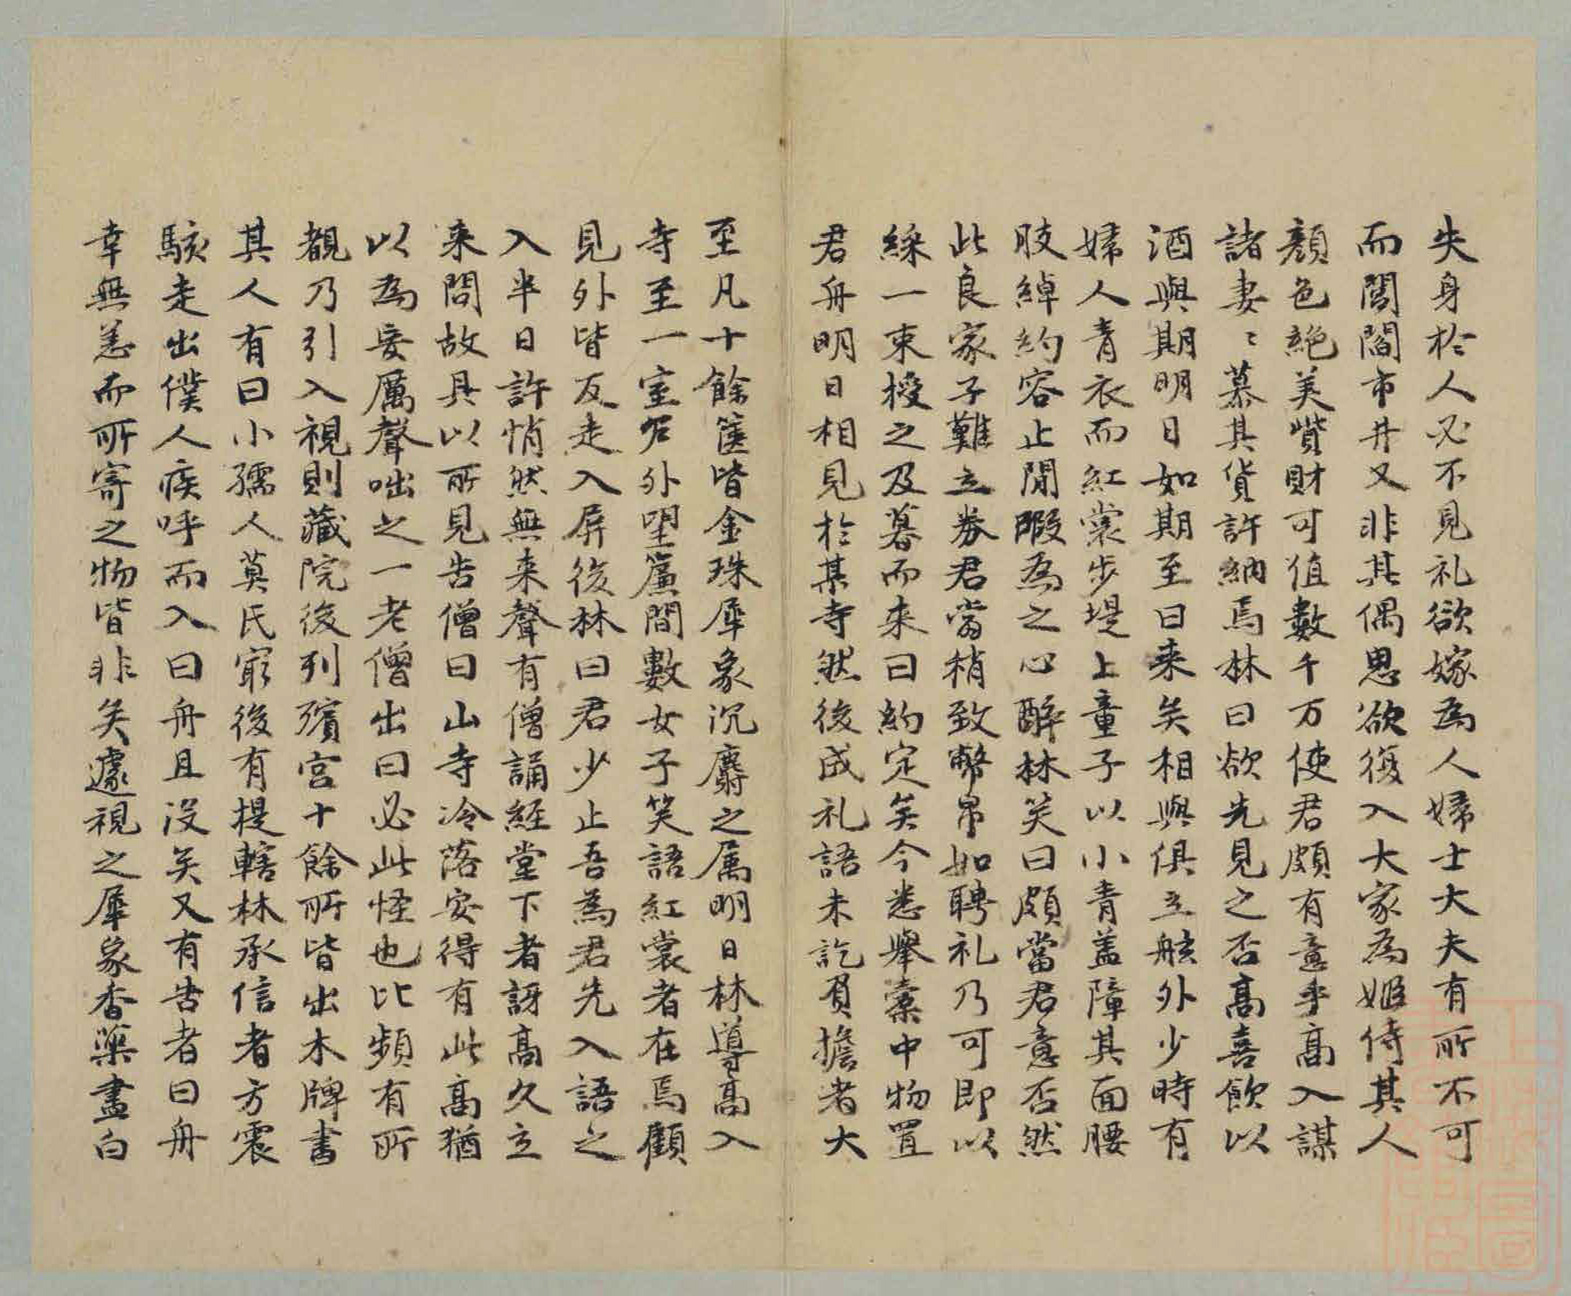 失身於人必不見礼欲嫁為人婦士大夫有所不可
而閭閻市井又非其偶思欲復入大家為姬侍其人
顏色絕美貲財可值數千万使君頗有意乎高入謀
諸妻〻慕其貨許納焉林曰欲先見之否高喜飲以
酒與期明日如期至曰来矣相與俱立舷外少時有
婦人青衣而紅裳步堤上童子以小青盖障其面腰
肢綽約容止閒暇為之心醉林笑曰頗當君意否然
此良家子難立券君當稍致幣帛如聘礼乃可即以
綵一束授之及暮而来曰約定矣今悉舉橐中物置
君舟明日相見於某寺然後成礼語未訖負擔者大
至凡十餘篋皆金珠犀象沉麝之属明日林導高入
寺至一室名外望簾間數女子笑語紅裳者在焉顧
見外皆反走入屏後林曰君少止吾為君先入語之
入半日許悄然無来聲有僧誦經堂下者訝高久立
来問故具以所見告僧曰山寺冷落安得有此高猶
以為妄厲聲咄之一老僧出曰必此怪也比頻有所
覩乃引入視則藏院後列殯宮十餘所皆出木牌書
其人有曰小孺人莫氏窮後有提轄林承信者方震
駭走出僕人疾呼而入曰舟且没矣又有告者曰舟
幸無恙而所寄之物皆非矣遽視之犀象香藥盡白